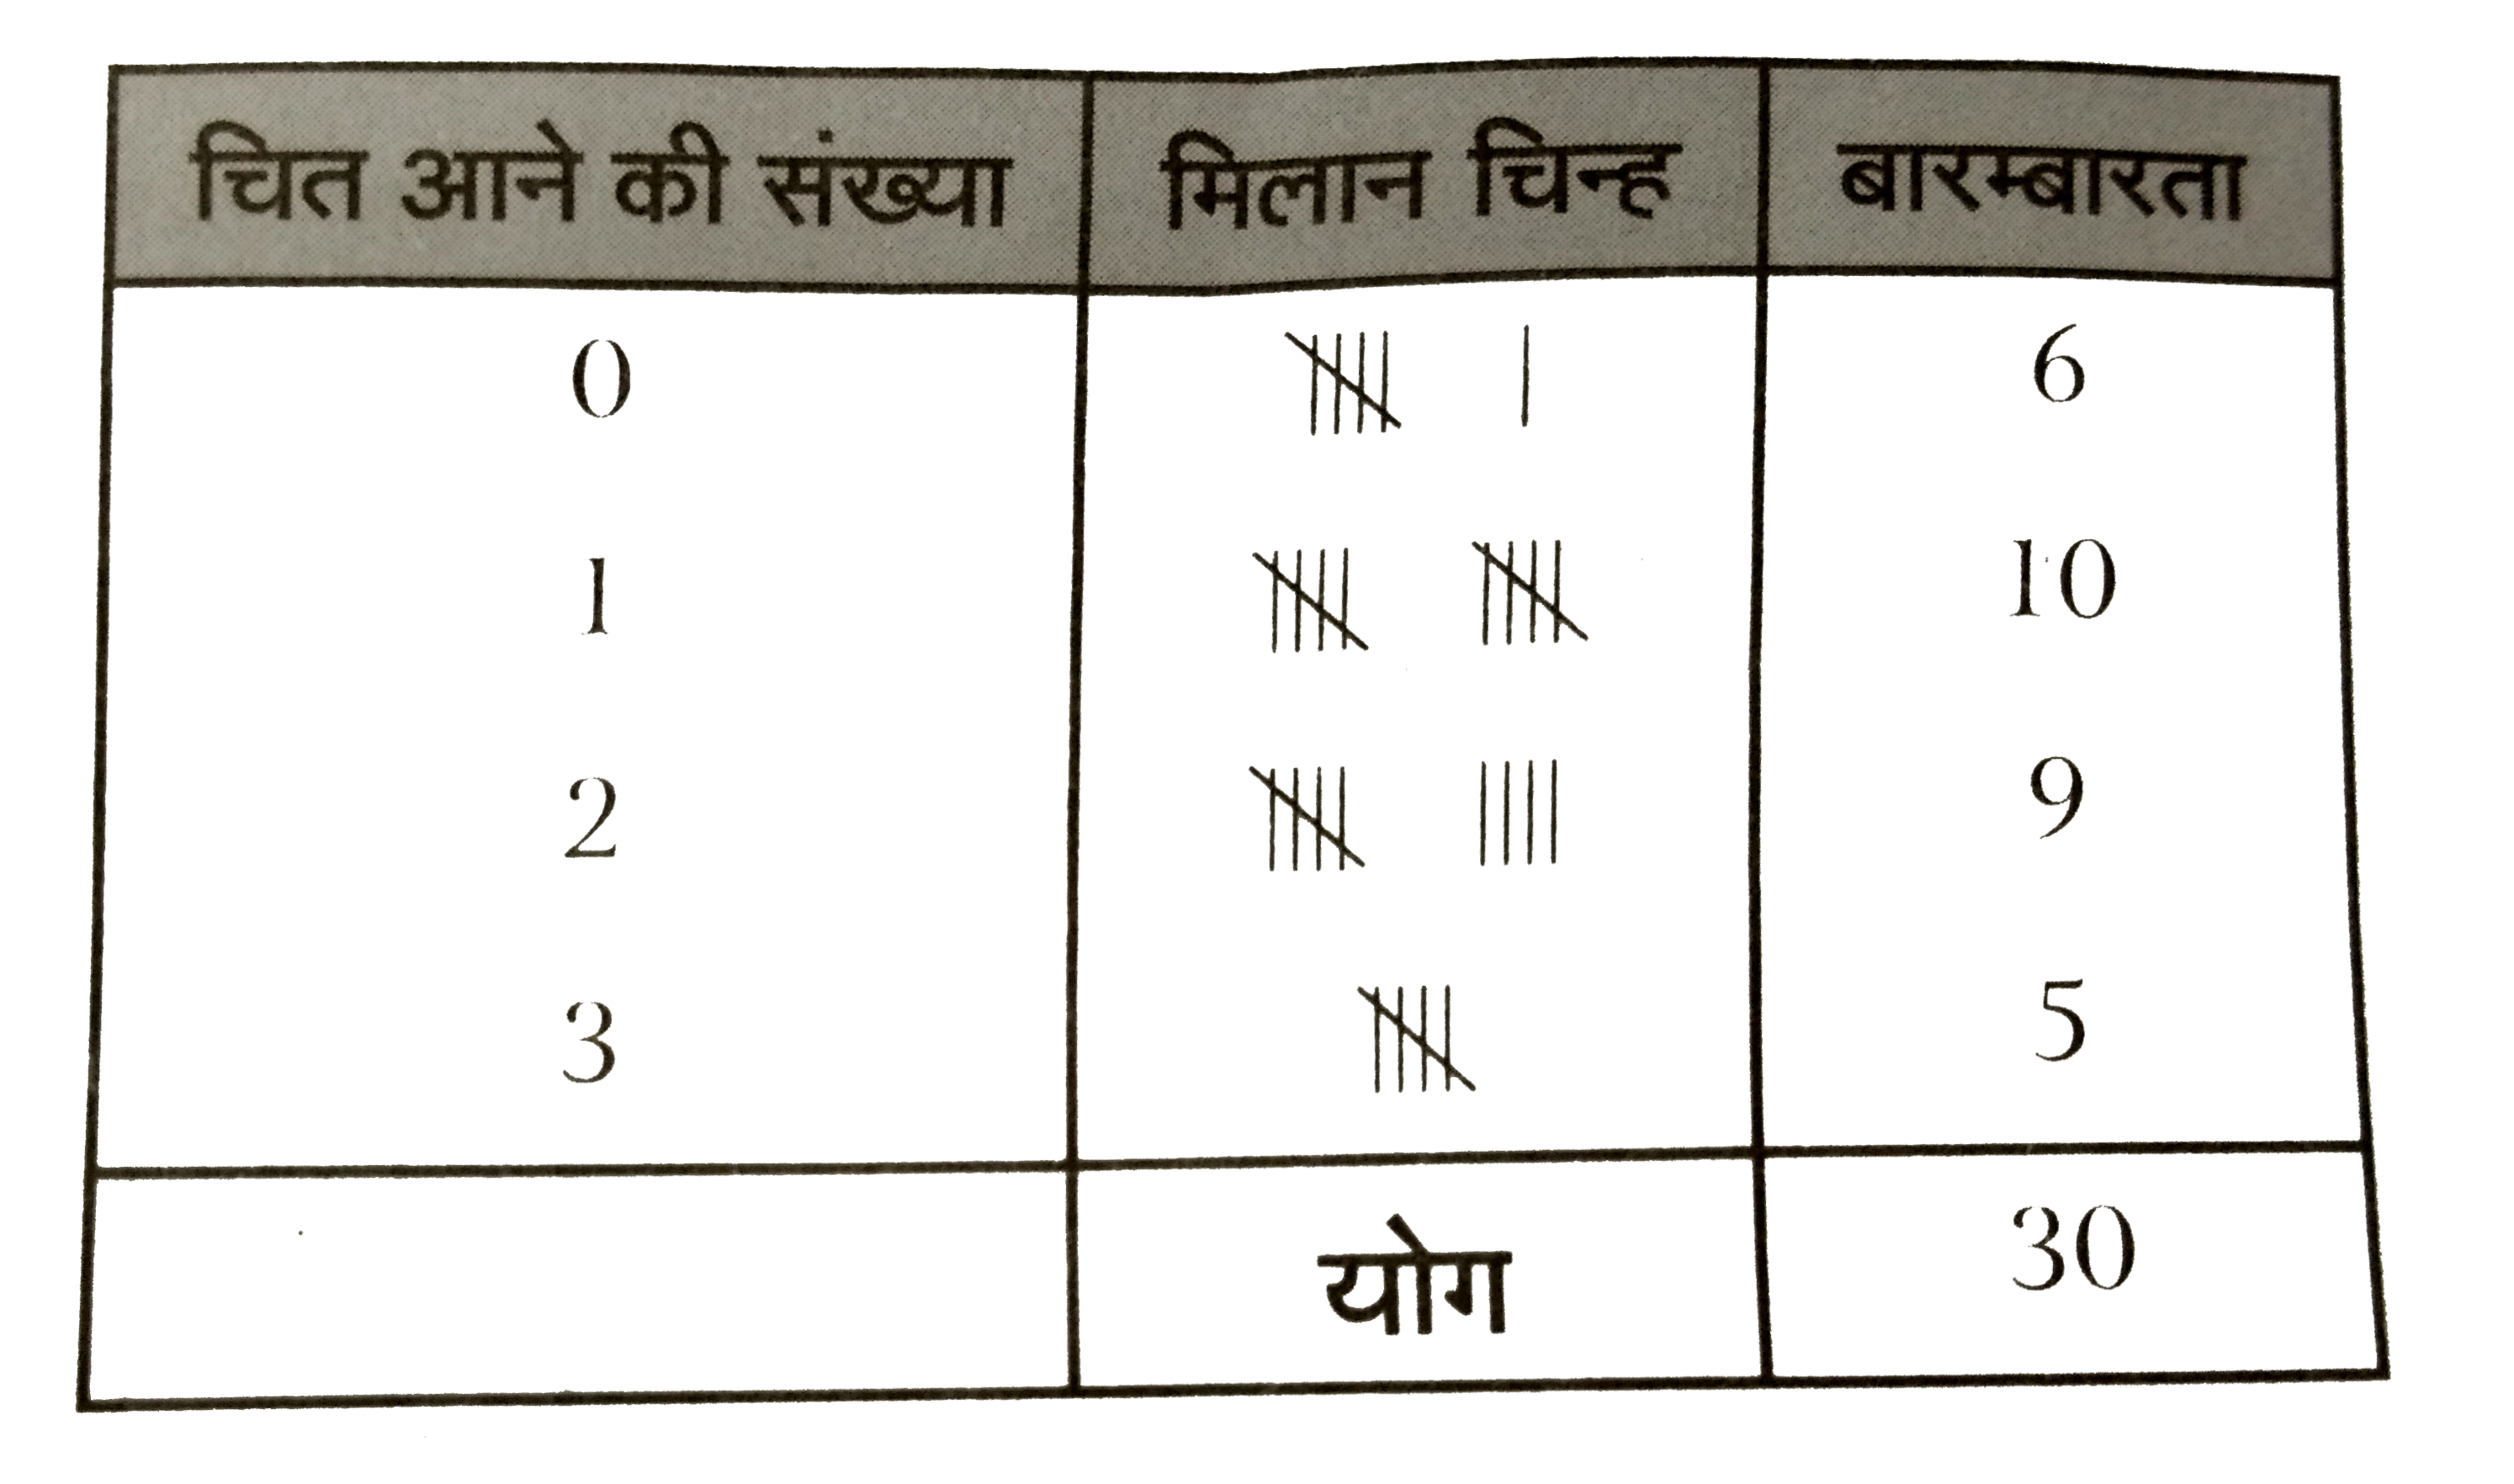 चित आने की संख्या मिलान चिन्ह बारम्बारता
0 𝍸 | 6
1 𝍸 𝍸 10
2 𝍸 |||| 9
3 𝍸 5
योग 30